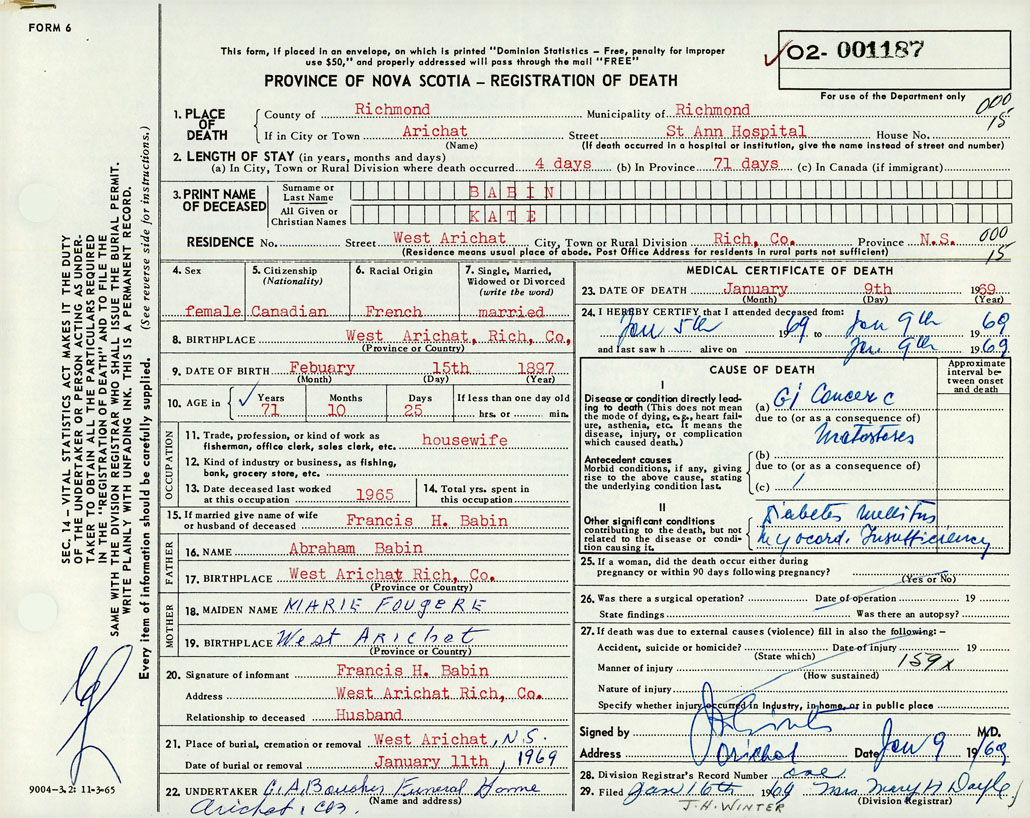 FORM 6
This form, if placed in an envelope, on which is printed "Dominion Statistics – Free, penalty for improper
use $50," and properly addressed will pass through the mail "FREE"
PROVINCE OF NOVA SCOTIA – REGISTRATION OF DEATH
✓02- 001187
For use of the Department only
000
15
SEC. 14 – VITAL STATISTICS ACT MAKES IT THE DUTY
OF THE UNDERTAKER OR PERSON ACTING AS UNDER-
TAKER TO OBTAIN ALL THE PARTICULARS REQUIRED
IN THE "REGISTRATION OF DEATH" AND TO FILE THE
SAME WITH THE DIVISION REGISTRAR WHO SHALL ISSUE THE BURIAL PERMIT.
WRITE PLAINLY WITH UNFADING INK. THIS IS A PERMANENT RECORD.
Every item of information should be carefully supplied. (See reverse side for instructions.)
1. PLACE OF DEATH
County of Richmond Municipality of Richmond
If in City or Town Arichat Street St Ann Hospital House No.
(Name) (If death occurred in a hospital or institution, give the name instead of street and number)
2. LENGTH OF STAY (in years, months and days)
(a) In City, Town or Rural Division where death occurred 4 days (b) In Province 71 days (c) In Canada (if immigrant)
3. PRINT NAME OF DECEASED
Surname or Last Name BABIN
All Given or Christian Names KATE
RESIDENCE No. Street West Arichat City, Town or Rural Division Rich, Co. Province N.S. 000
15
(Residence means usual place of abode. Post Office Address for residents in rural parts not sufficient)
4. Sex
female
5. Citizenship
(Nationality)
Canadian
6. Racial Origin
French
7. Single, Married,
Widowed or Divorced
(write the word)
married
8. BIRTHPLACE West Arichat, Rich, Co.
(Province or Country)
9. DATE OF BIRTH Febuary 15th 1897
(Month) (Day) (Year)
10. AGE in ✓ Years Months Days If less than one day old
71 10 25 hrs. or min.
OCCUPATION
11. Trade, profession, or kind of work as
fisherman, office clerk, sales clerk, etc. housewife
12. Kind of industry or business, as fishing,
bank, grocery store, etc.
13. Date deceased last worked
at this occupation 1965
14. Total yrs. spent in
this occupation
15. If married give name of wife
or husband of deceased Francis H. Babin
FATHER
16. NAME Abraham Babin
17. BIRTHPLACE West Arichat Rich, Co.
(Province or Country)
MOTHER
18. MAIDEN NAME MARIE FOUGERE
19. BIRTHPLACE West Arichat
(Province or Country)
20. Signature of informant Francis H. Babin
Address West Arichat Rich, Co.
Relationship to deceased Husband
21. Place of burial, cremation or removal West Arichat, N.S.
Date of burial or removal January 11th, 1969
22. UNDERTAKER C.A. Funeral Home
(Name and address)
Arichat,
9004-3.2: 11-3-65
MEDICAL CERTIFICATE OF DEATH
23. DATE OF DEATH January 9th 1969
(Month) (Day) (Year)
24. I HEREBY CERTIFY that I attended deceased from:
Jan 5th 1969 to Jan 9th 1969
and last saw h alive on Jan. 9th 1969
CAUSE OF DEATH
Approximate
interval be-
tween onset
and death
I
Disease or condition directly lead-
ing to death (This does not mean
the mode of dying, e.g., heart fail-
ure, asthenia, etc. It means the
disease, injury, or complication
which caused death.)
(a) GI Cancer c
due to (or as a consequence of)
Matostoses
Antecedent causes
Morbid conditions, if any, giving
rise to the above cause, stating
the underlying condition last.
(b)
due to (or as a consequence of)
(c)
II
Other significant conditions
contributing to the death, but not
related to the disease or condi-
tion causing it.
Diabetes Mellitus
Myocard. Insufficiency
25. If a woman, did the death occur either during
pregnancy or within 90 days following pregnancy?
(Yes or No)
26. Was there a surgical operation? Date of operation 19
State findings Was there an autopsy?
27. If death was due to external causes (violence) fill in also the following: –
Accident, suicide or homicide? Date of injury 19
(State which)
159x
Manner of injury
(How sustained)
Nature of injury
Specify whether injury occurred in industry, in home, or in public place
Signed by M.D.
Address Arichat Date Jan 9 1969
28. Division Registrar's Record Number one
29. Filed Jan 16th 1969 Mrs Mary H
(Division Registrar)
J.H. WINTER